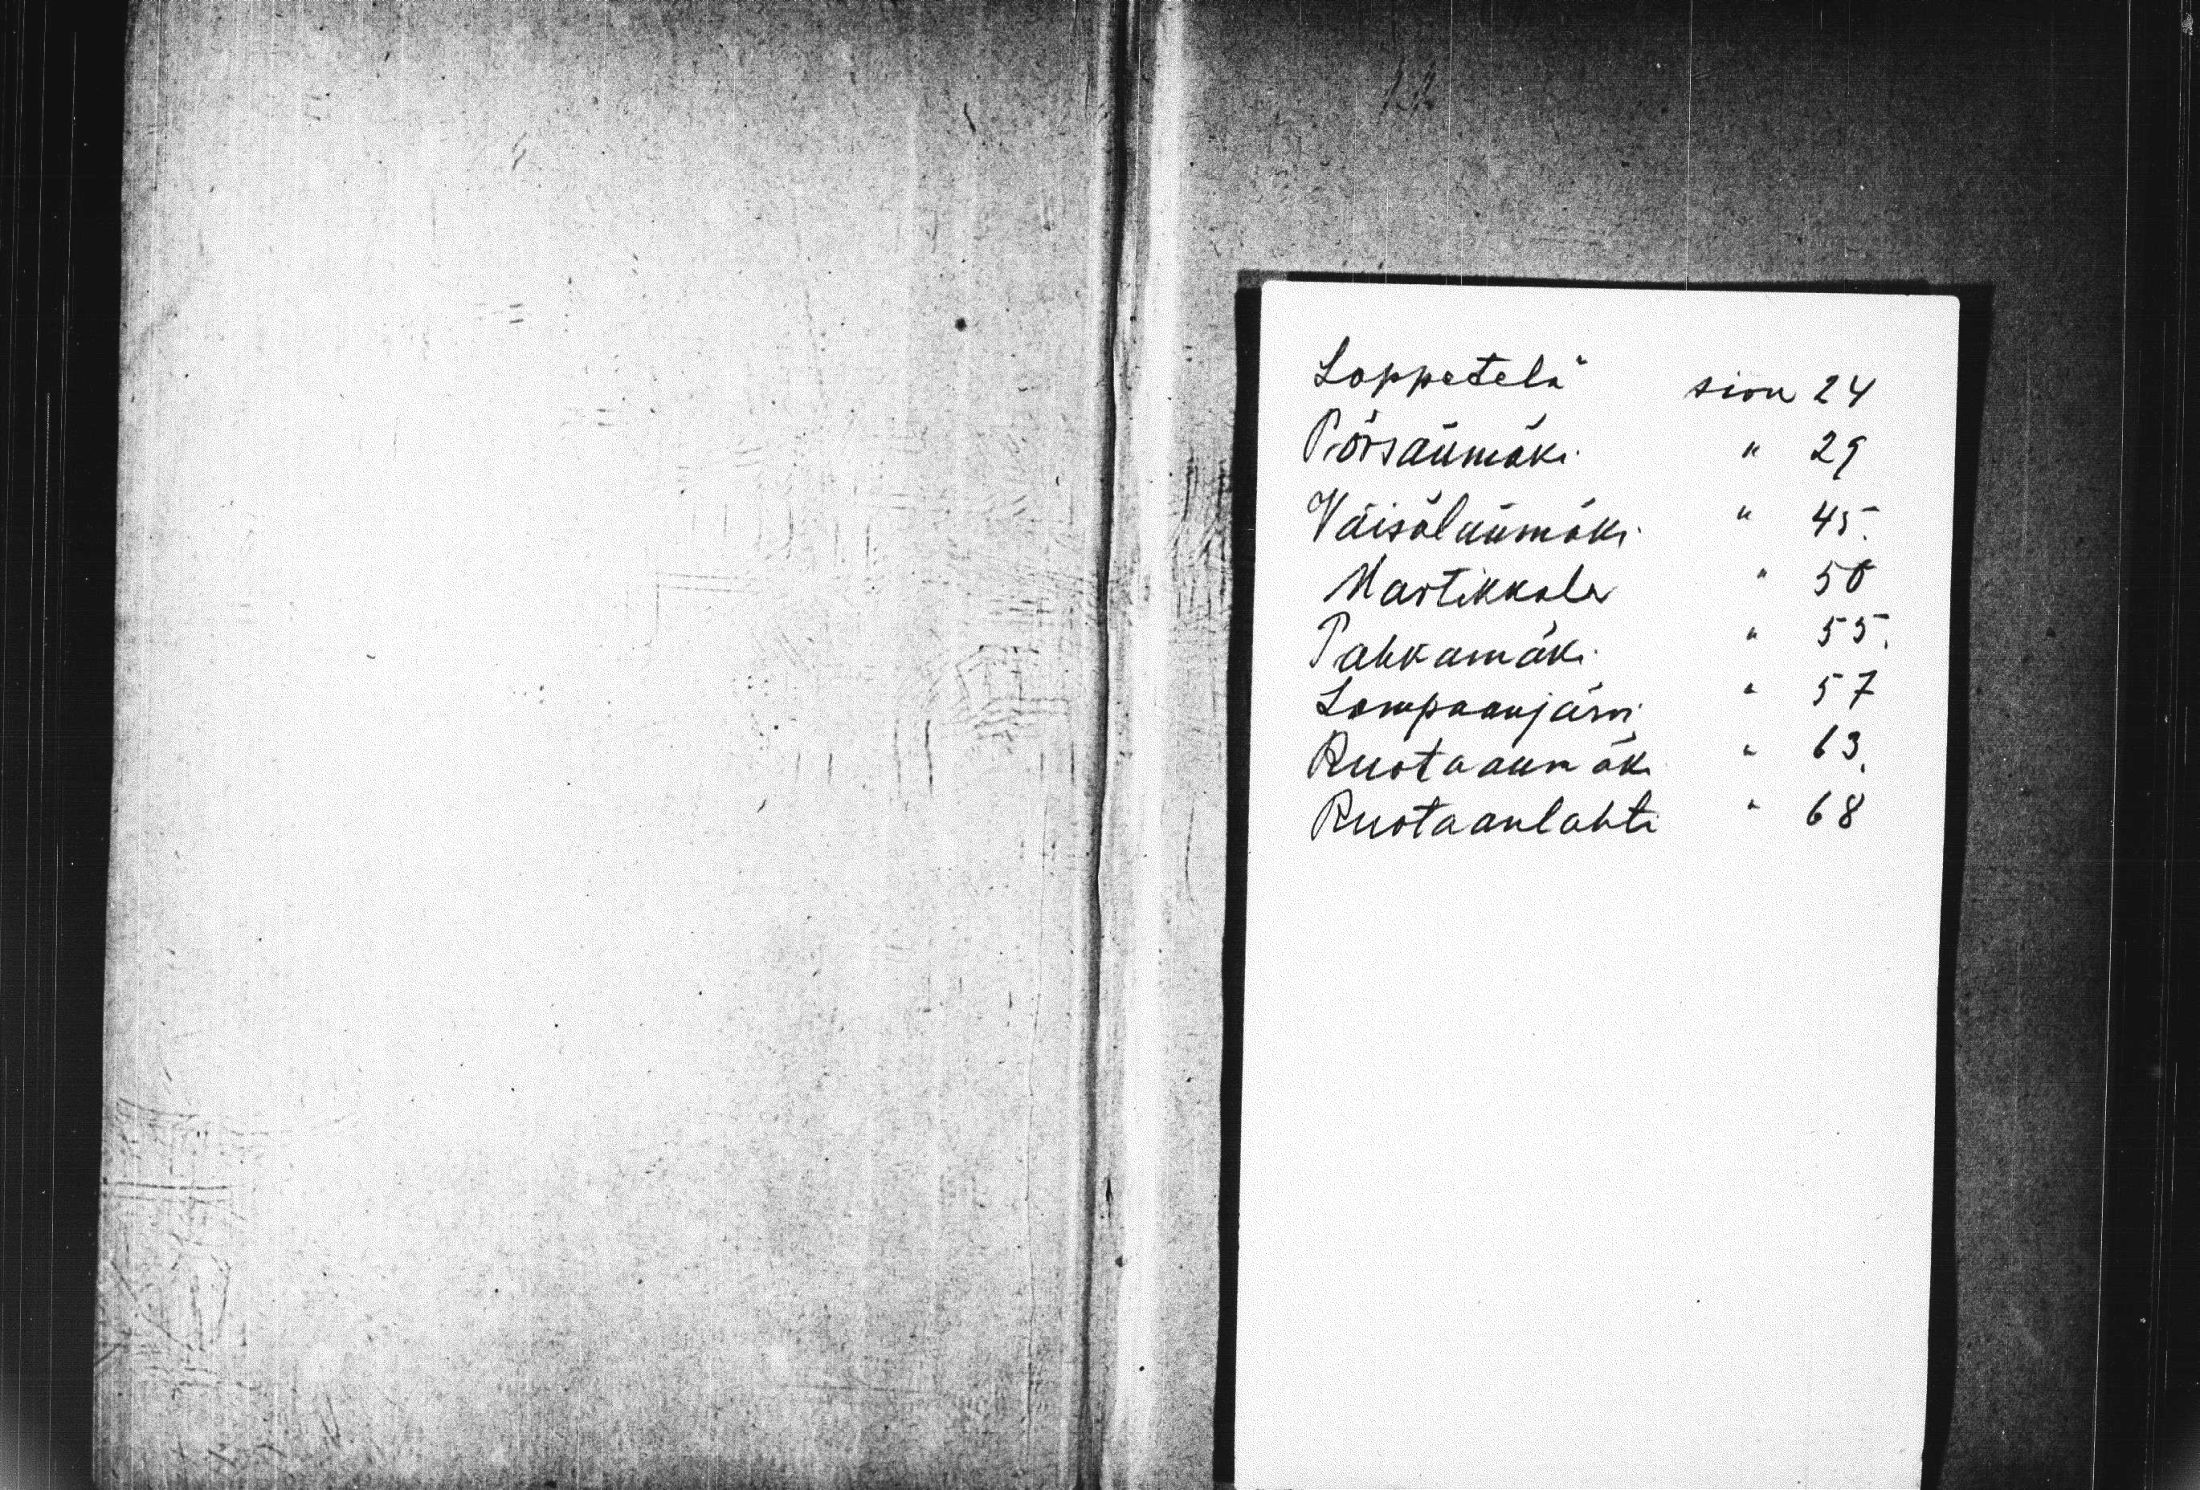 Loppetelä sivu 24
Pörsänmäki " 29
Väisälänmäki " 45.
Martikkala " 50
Pahkamäki " 55.
Lampaanjärvi " 57
Ruotaanmäki " 63.
Ruotaanlahti " 68